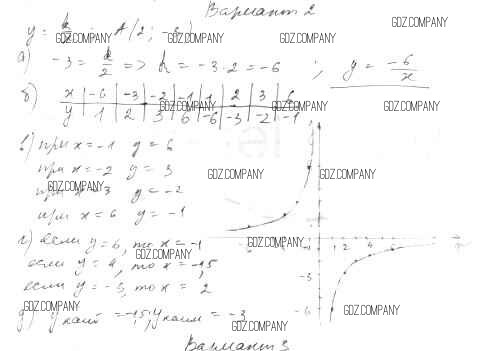 Вариант 2
y = k/x ; A(2; -3)
а) -3 = k/2 => k = -3·2 = -6 ; y = -6/x
б) x | -6 | -3 | -2 | -1 | 1 | 2 | 3 | 6
y | 1 | 2 | 3 | 6 | -6 | -3 | -2 | -1
в) при x = -1 y = 6
при x = -2 y = 3
при x = 3 y = -2
при x = 6 y = -1
г) если y = 6, то x = -1
если y = 4, то x = -1,5
если y = -3, то x = 2
д) y наиб = -1,5; y наим = -3
Вариант 3
GDZ.COMPANY
GDZ.COMPANY
GDZ.COMPANY
GDZ.COMPANY
GDZ.COMPANY
GDZ.COMPANY
GDZ.COMPANY
GDZ.COMPANY
GDZ.COMPANY
GDZ.COMPANY
GDZ.COMPANY
GDZ.COMPANY
GDZ.COMPANY
GDZ.COMPANY